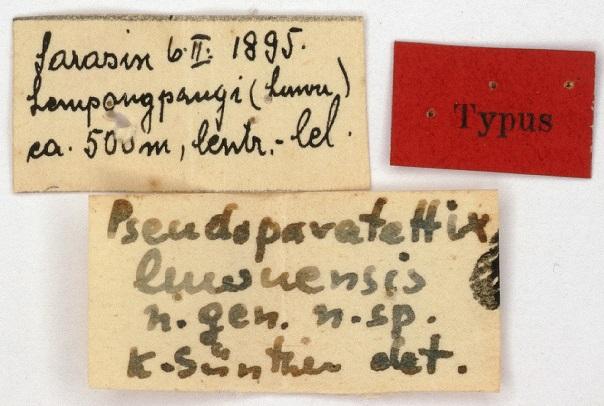 Sarasin 6.II. 1895.
Lempongpangi (Luwu)
ca. 500 m, Centr.-Cel.
Typus
Pseudoparatettix
luwuensis
n. gen. n. sp.
K. Günther det.